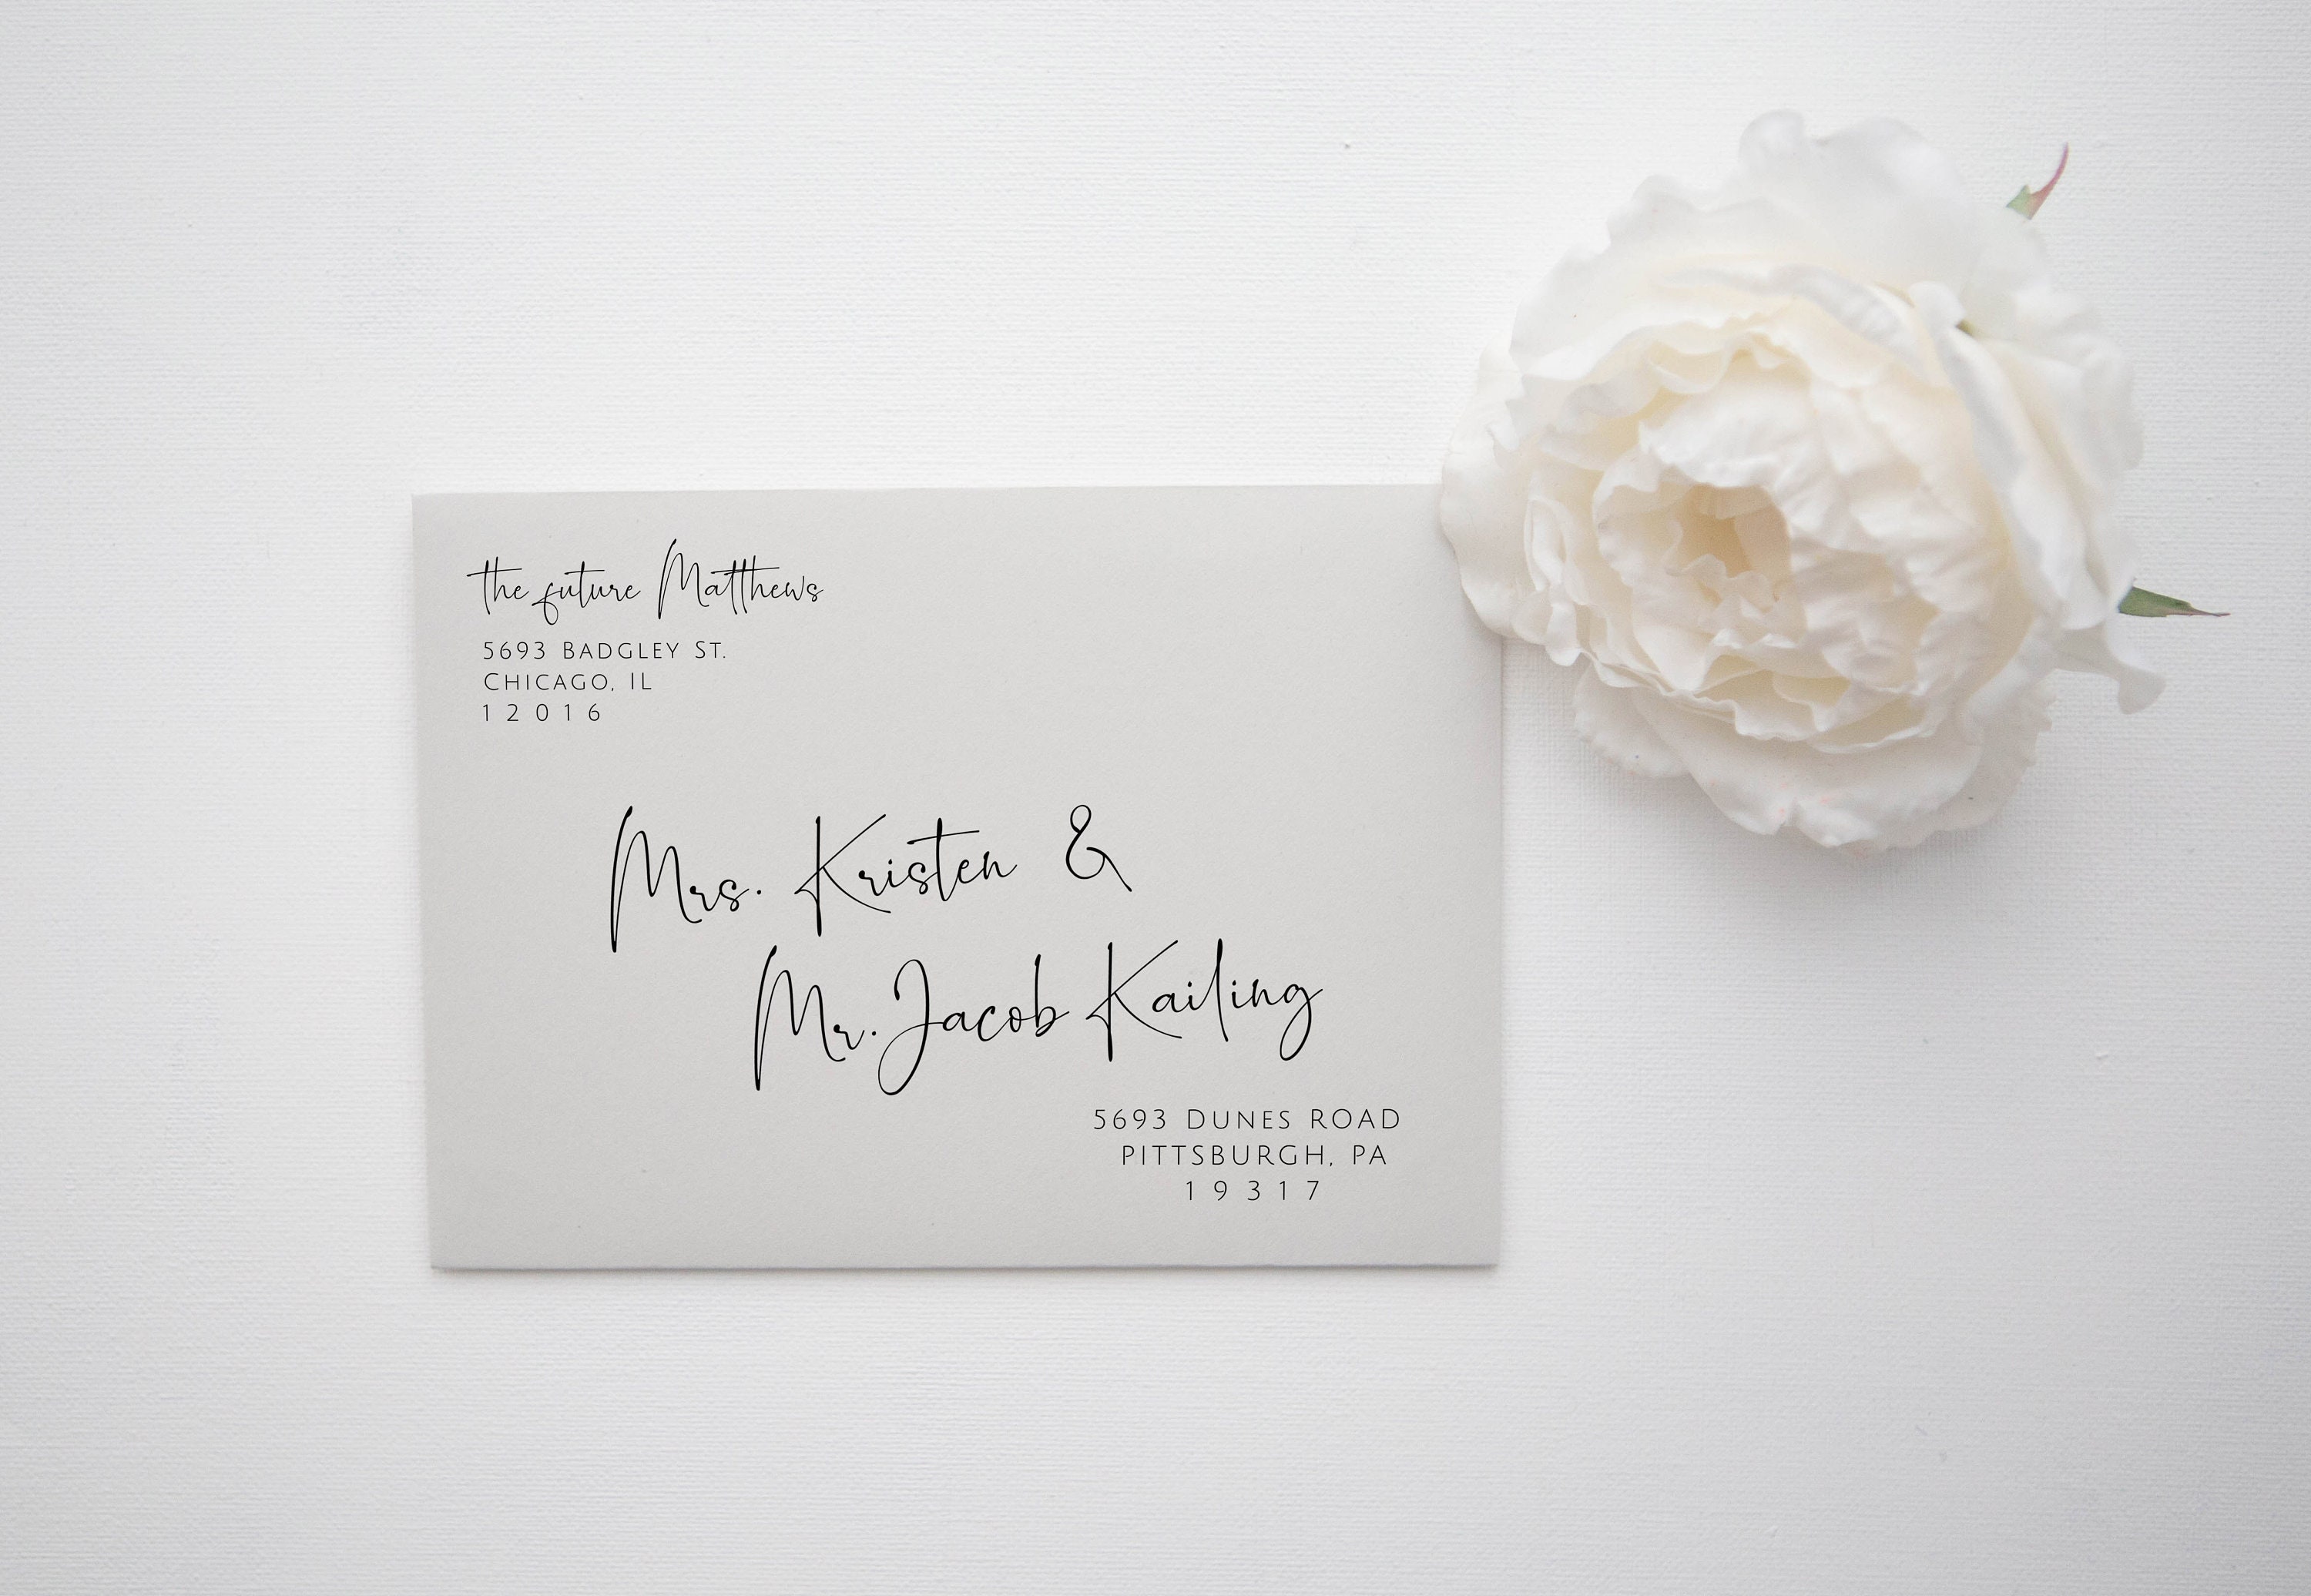 the future Matthews
5693 Badgley St.
Chicago, IL
12016
Mrs. Kristen &
Mr. Jacob Kailing
5693 Dunes Road
Pittsburgh, PA
19317